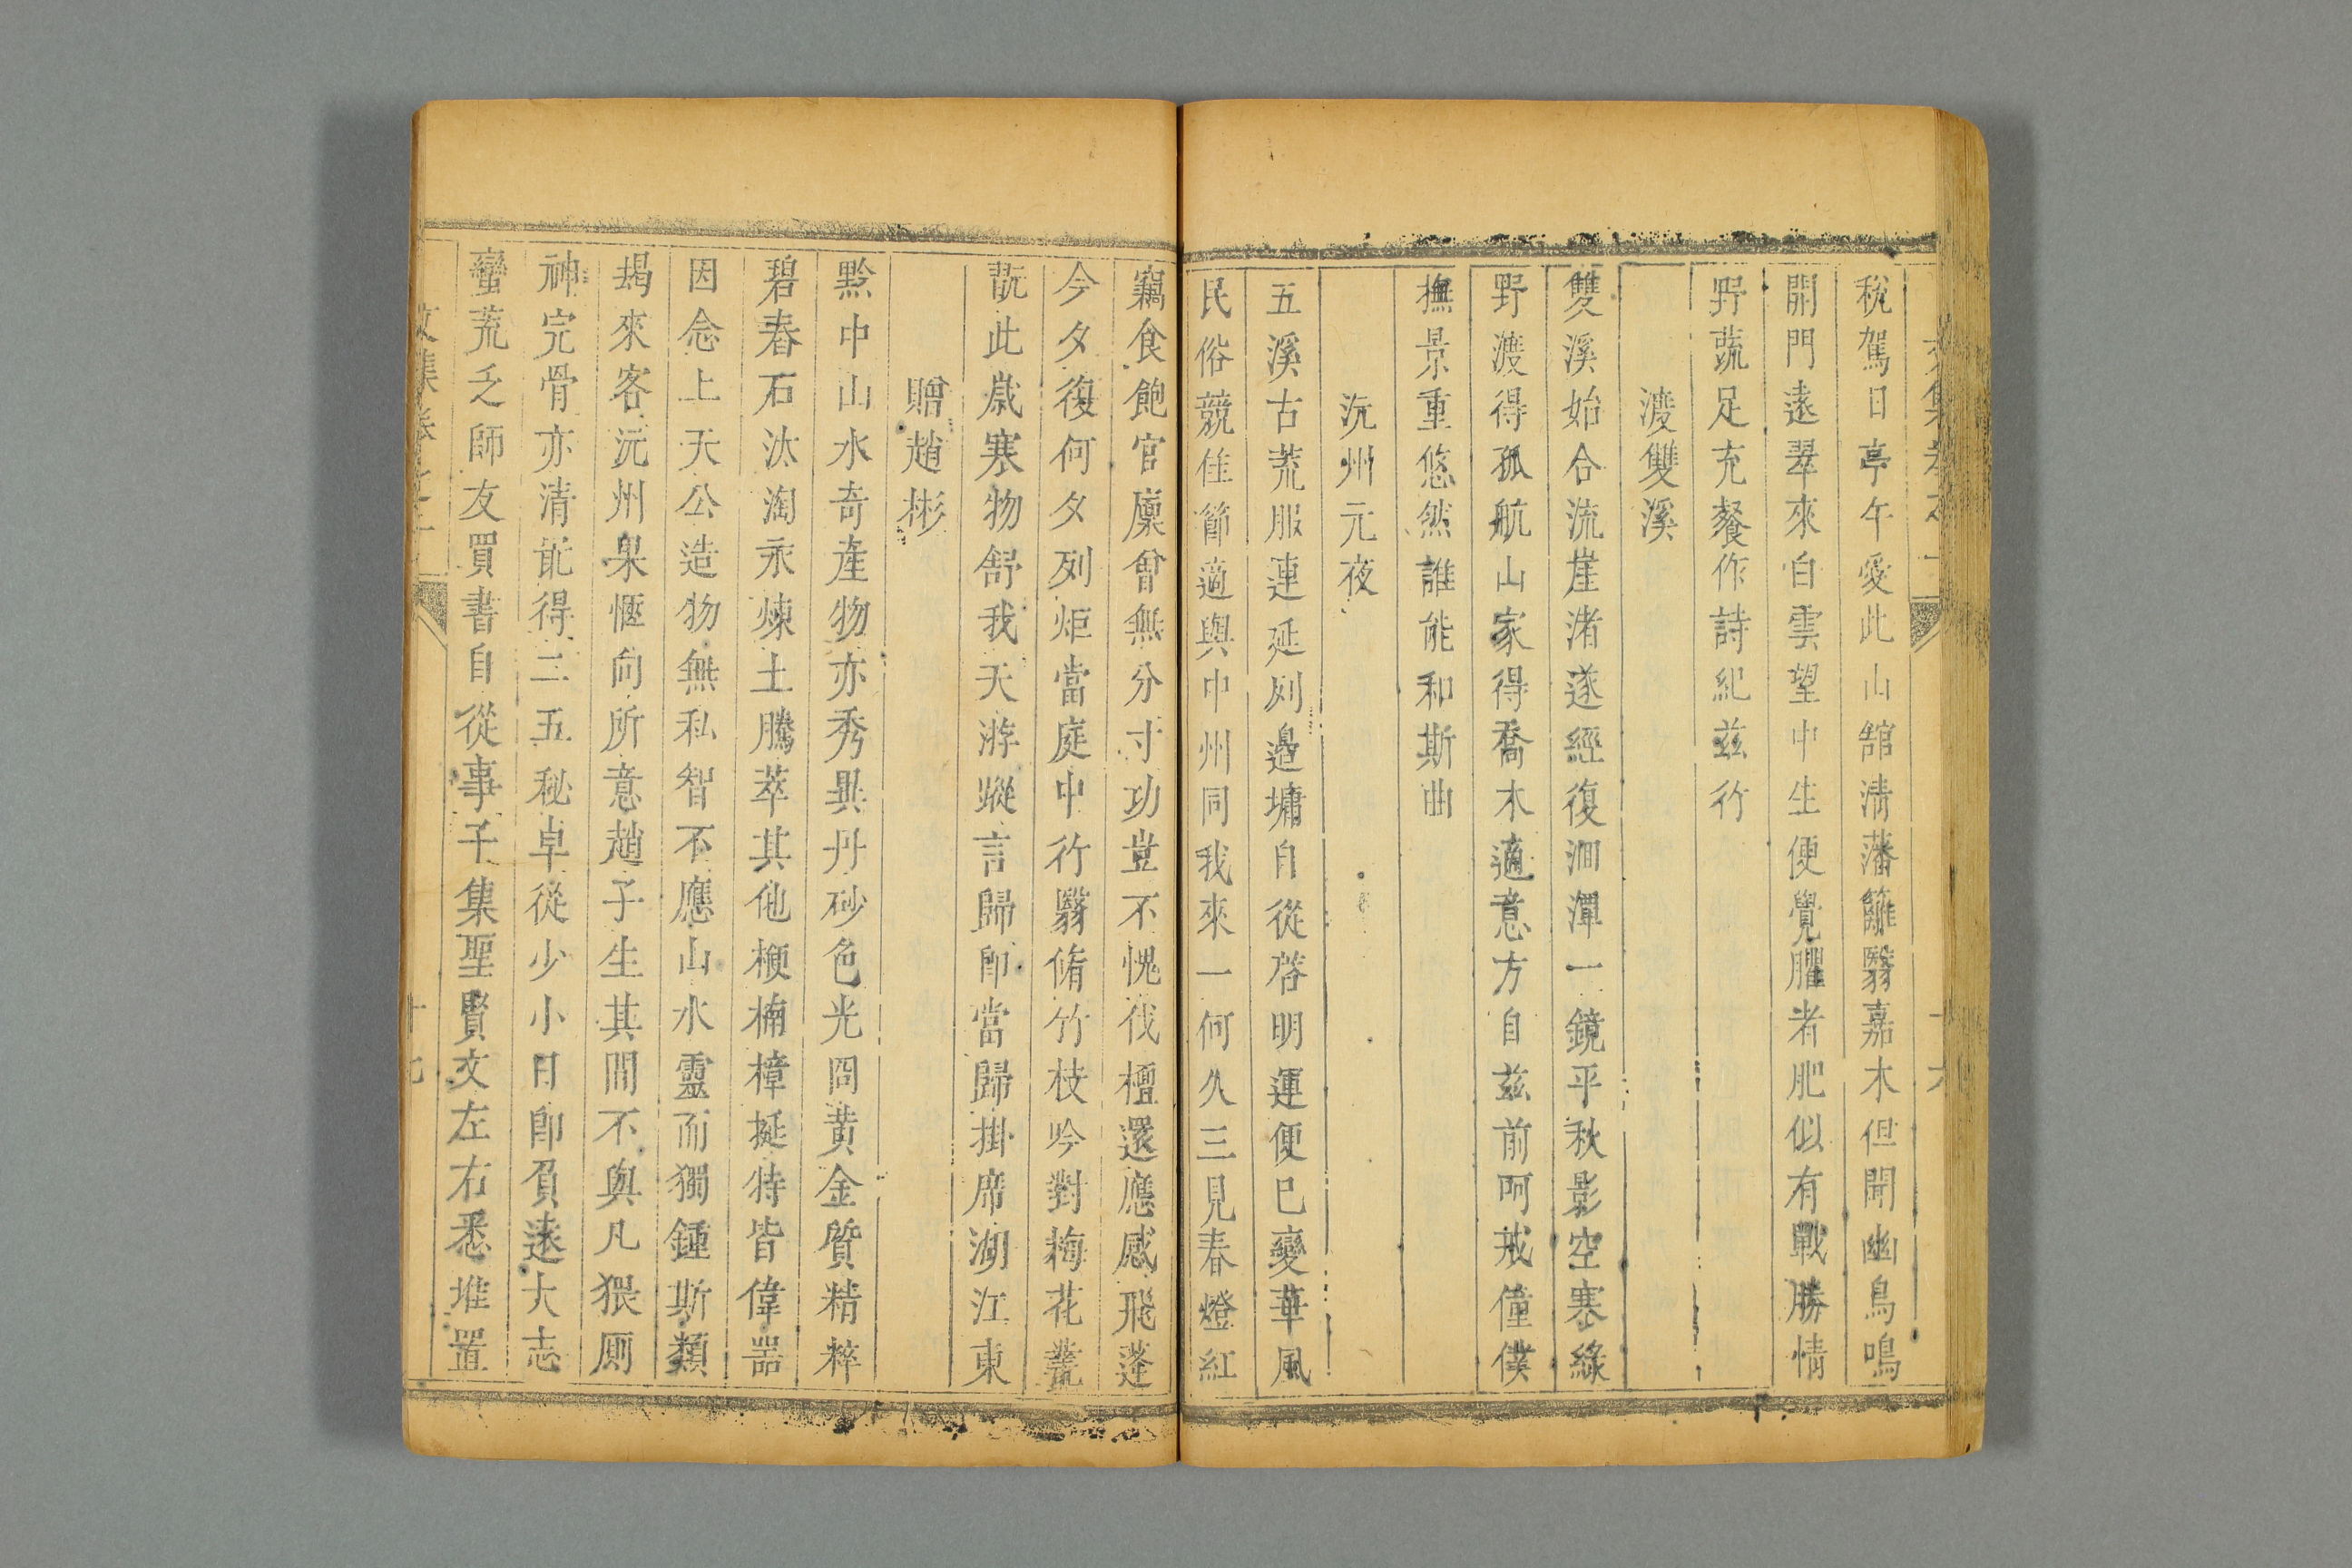 稅駕日亭午愛此山館清藩籬翳嘉木但聞幽鳥鳴
開門遠翠來白雲望中生便覺臞者肥似有戰勝情
野蔬足充餐作詩紀茲行
渡雙溪
雙溪始合流崖渚遂經復洄潭一鏡平秋影空寒綠
野渡得孤航山家得喬木適意方自茲前呵戒僮僕
撫景重悠然誰能和斯曲
沅州元夜
五溪古荒服連延列邊墉自從啓明運便已變華風
民俗競佳節適與中州同我來一何久三見春燈紅
竊食飽官廩曾無分寸功豈不愧伐檀還應感飛蓬
今夕復何夕列炬當庭中行翳脩竹枝吟對梅花叢
旣此歲寒物舒我天游蹤言歸卽當歸掛席湖江東
贈趙彬
黔中山水奇產物亦秀異丹砂色光冏黃金質精粹
碧舂石汰淘汞煉土騰萃其他楩楠樟挺特皆偉器
因念上天公造物無私智不應山水靈而獨鍾斯類
朅來客沅州果愜向所意趙子生其間不與凡猥厠
神完骨亦清能得二五秘卓從少小日卽負遠大志
蠻荒乏師友買書自從事子集聖賢文左右悉堆置
文集卷之一
十七